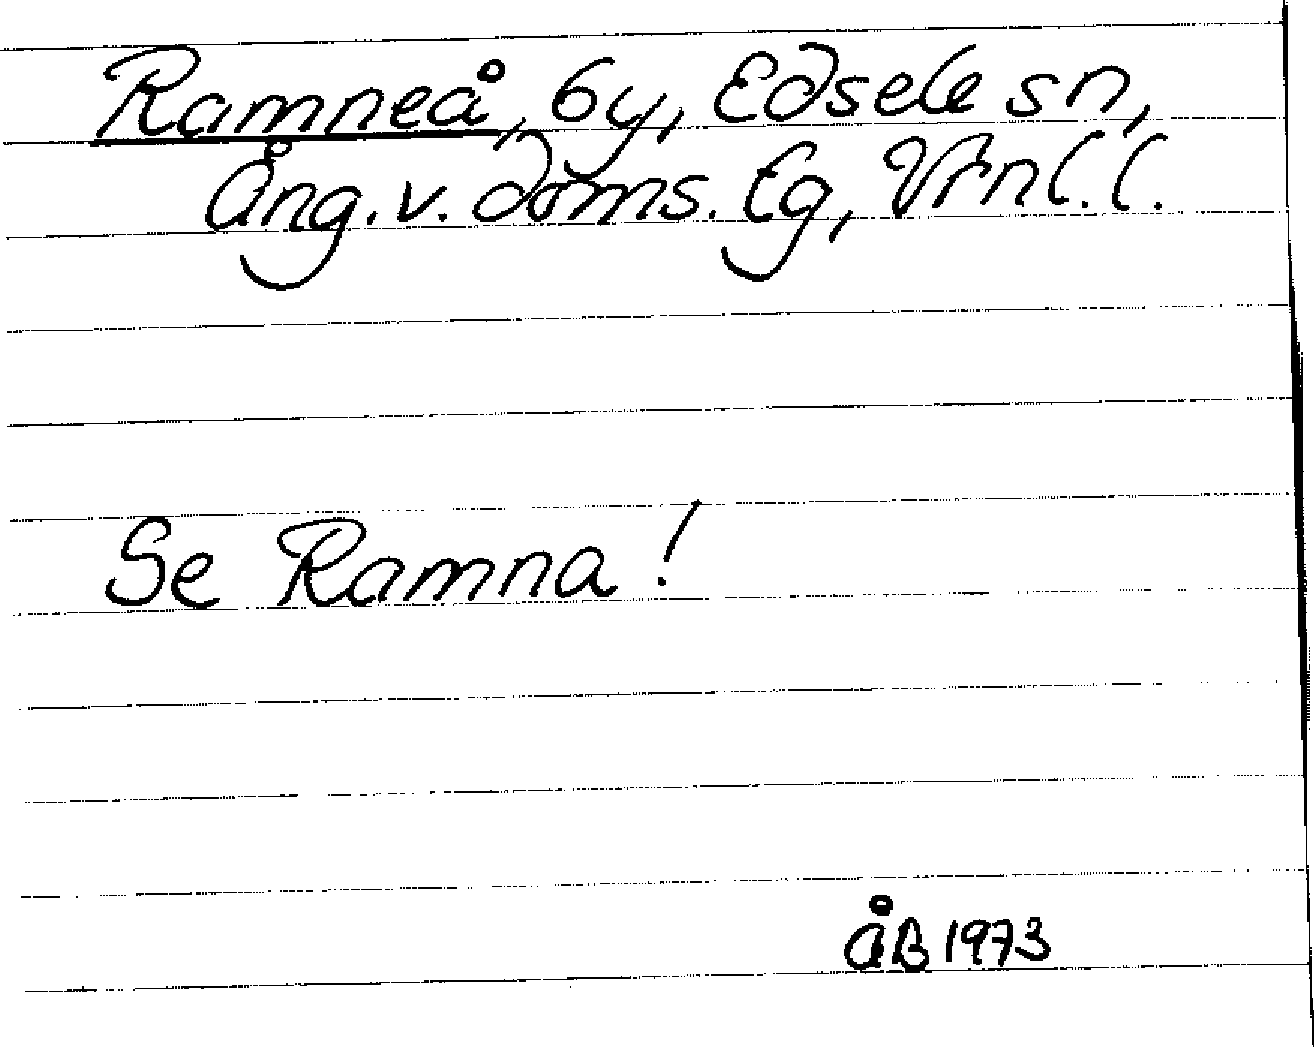 Ramneå, by, Edsele sn,
Ång. v. doms. lg, Vrnl. l.
Se Ramna!
ÅB 1973